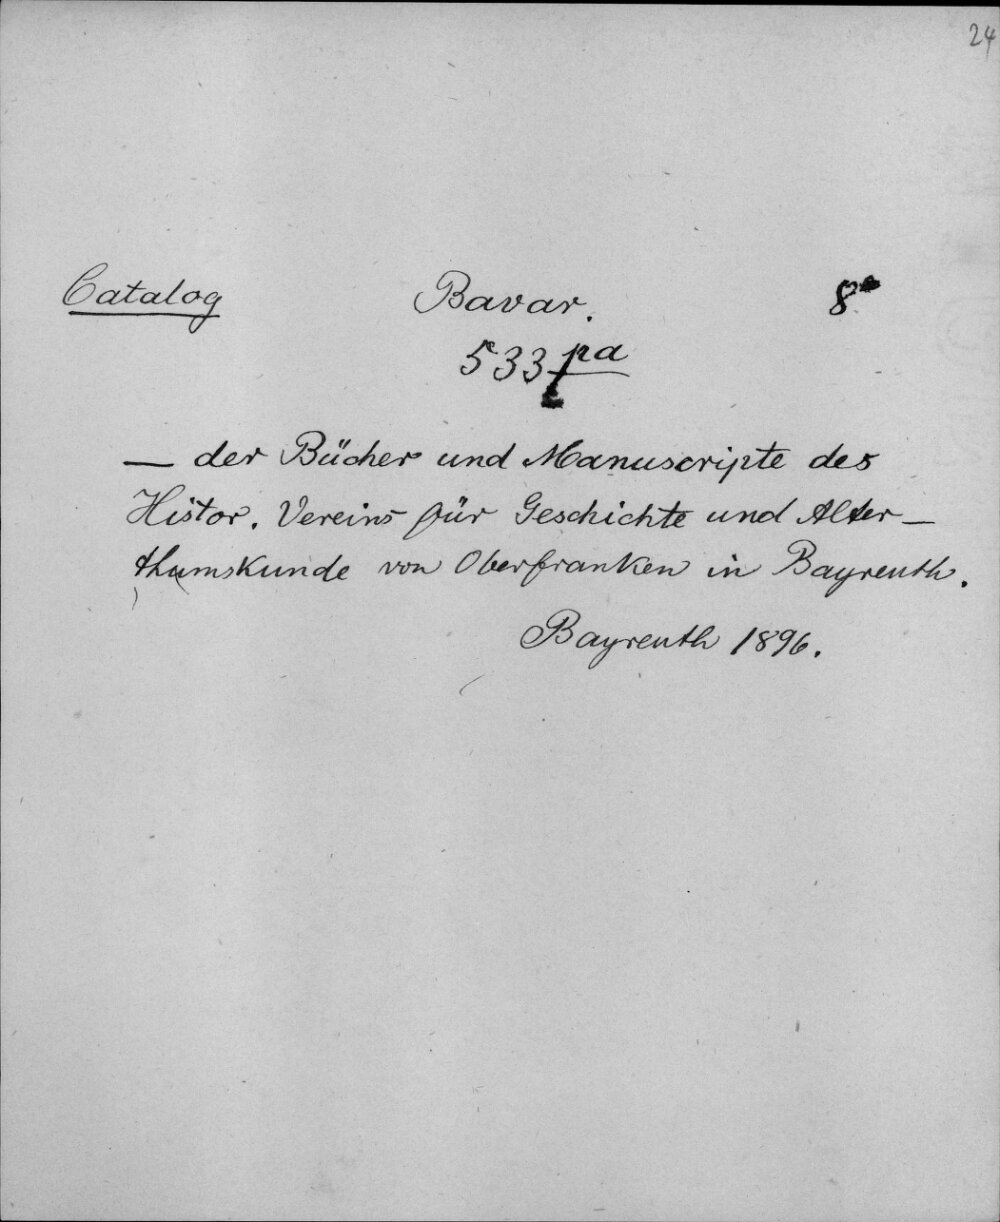 24
Catalog Bavar. 8°
533 pa
— der Bücher und Manuscripte des
Histor. Vereins für Geschichte und Alter-
thumskunde von Oberfranken in Bayreuth.
Bayreuth 1896.